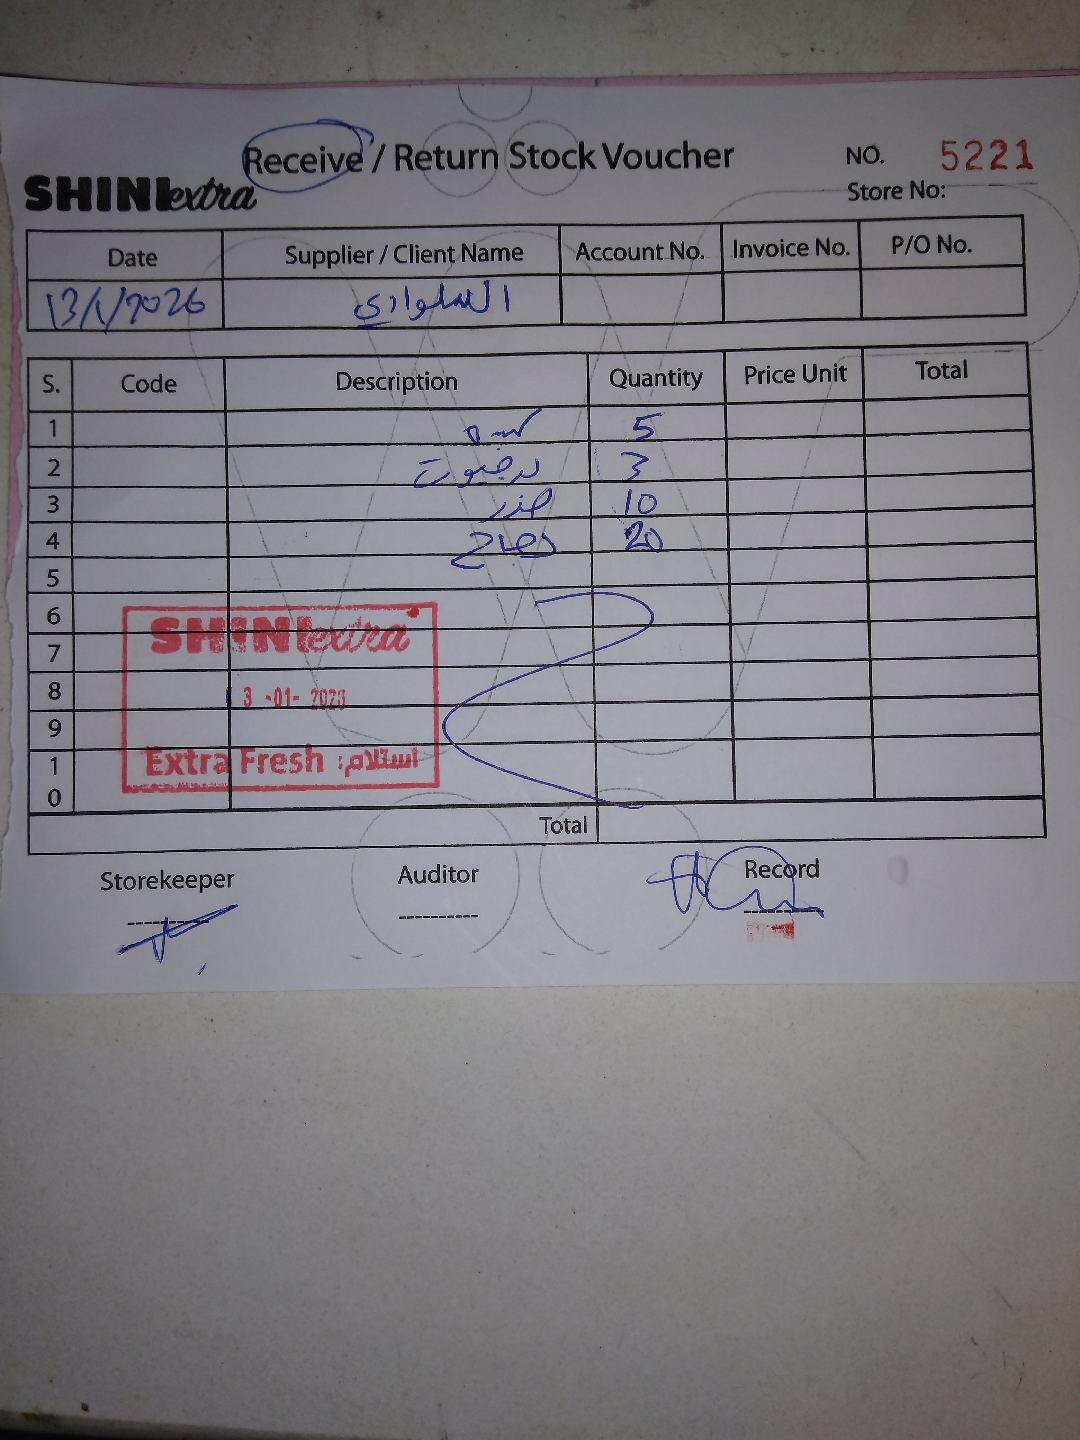 Receive / Return Stock Voucher
NO. 5221
SHINI extra
Store No:
Date Supplier / Client Name Account No. Invoice No. P/O No.
13/1/2026
S. Code Description Quantity Price Unit Total
1 كبده 5
2 3
3 صدر 10
4 دجاج 20
5
6
SHINI extra
7
8
3 -01- 2026
9
Extra Fresh استلام:
10
Total
Storekeeper Auditor Record